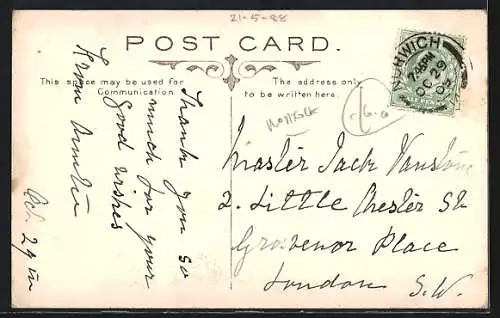 21-5-88
POST CARD.
This space may be used for
Communication.
The address only
to be written here.
NORWICH
OC 29
Thank you so
much for your
good wishes
From
Oct 29th
Master Jack
2. Little Chester St
Grosvenor Place
London S.W.